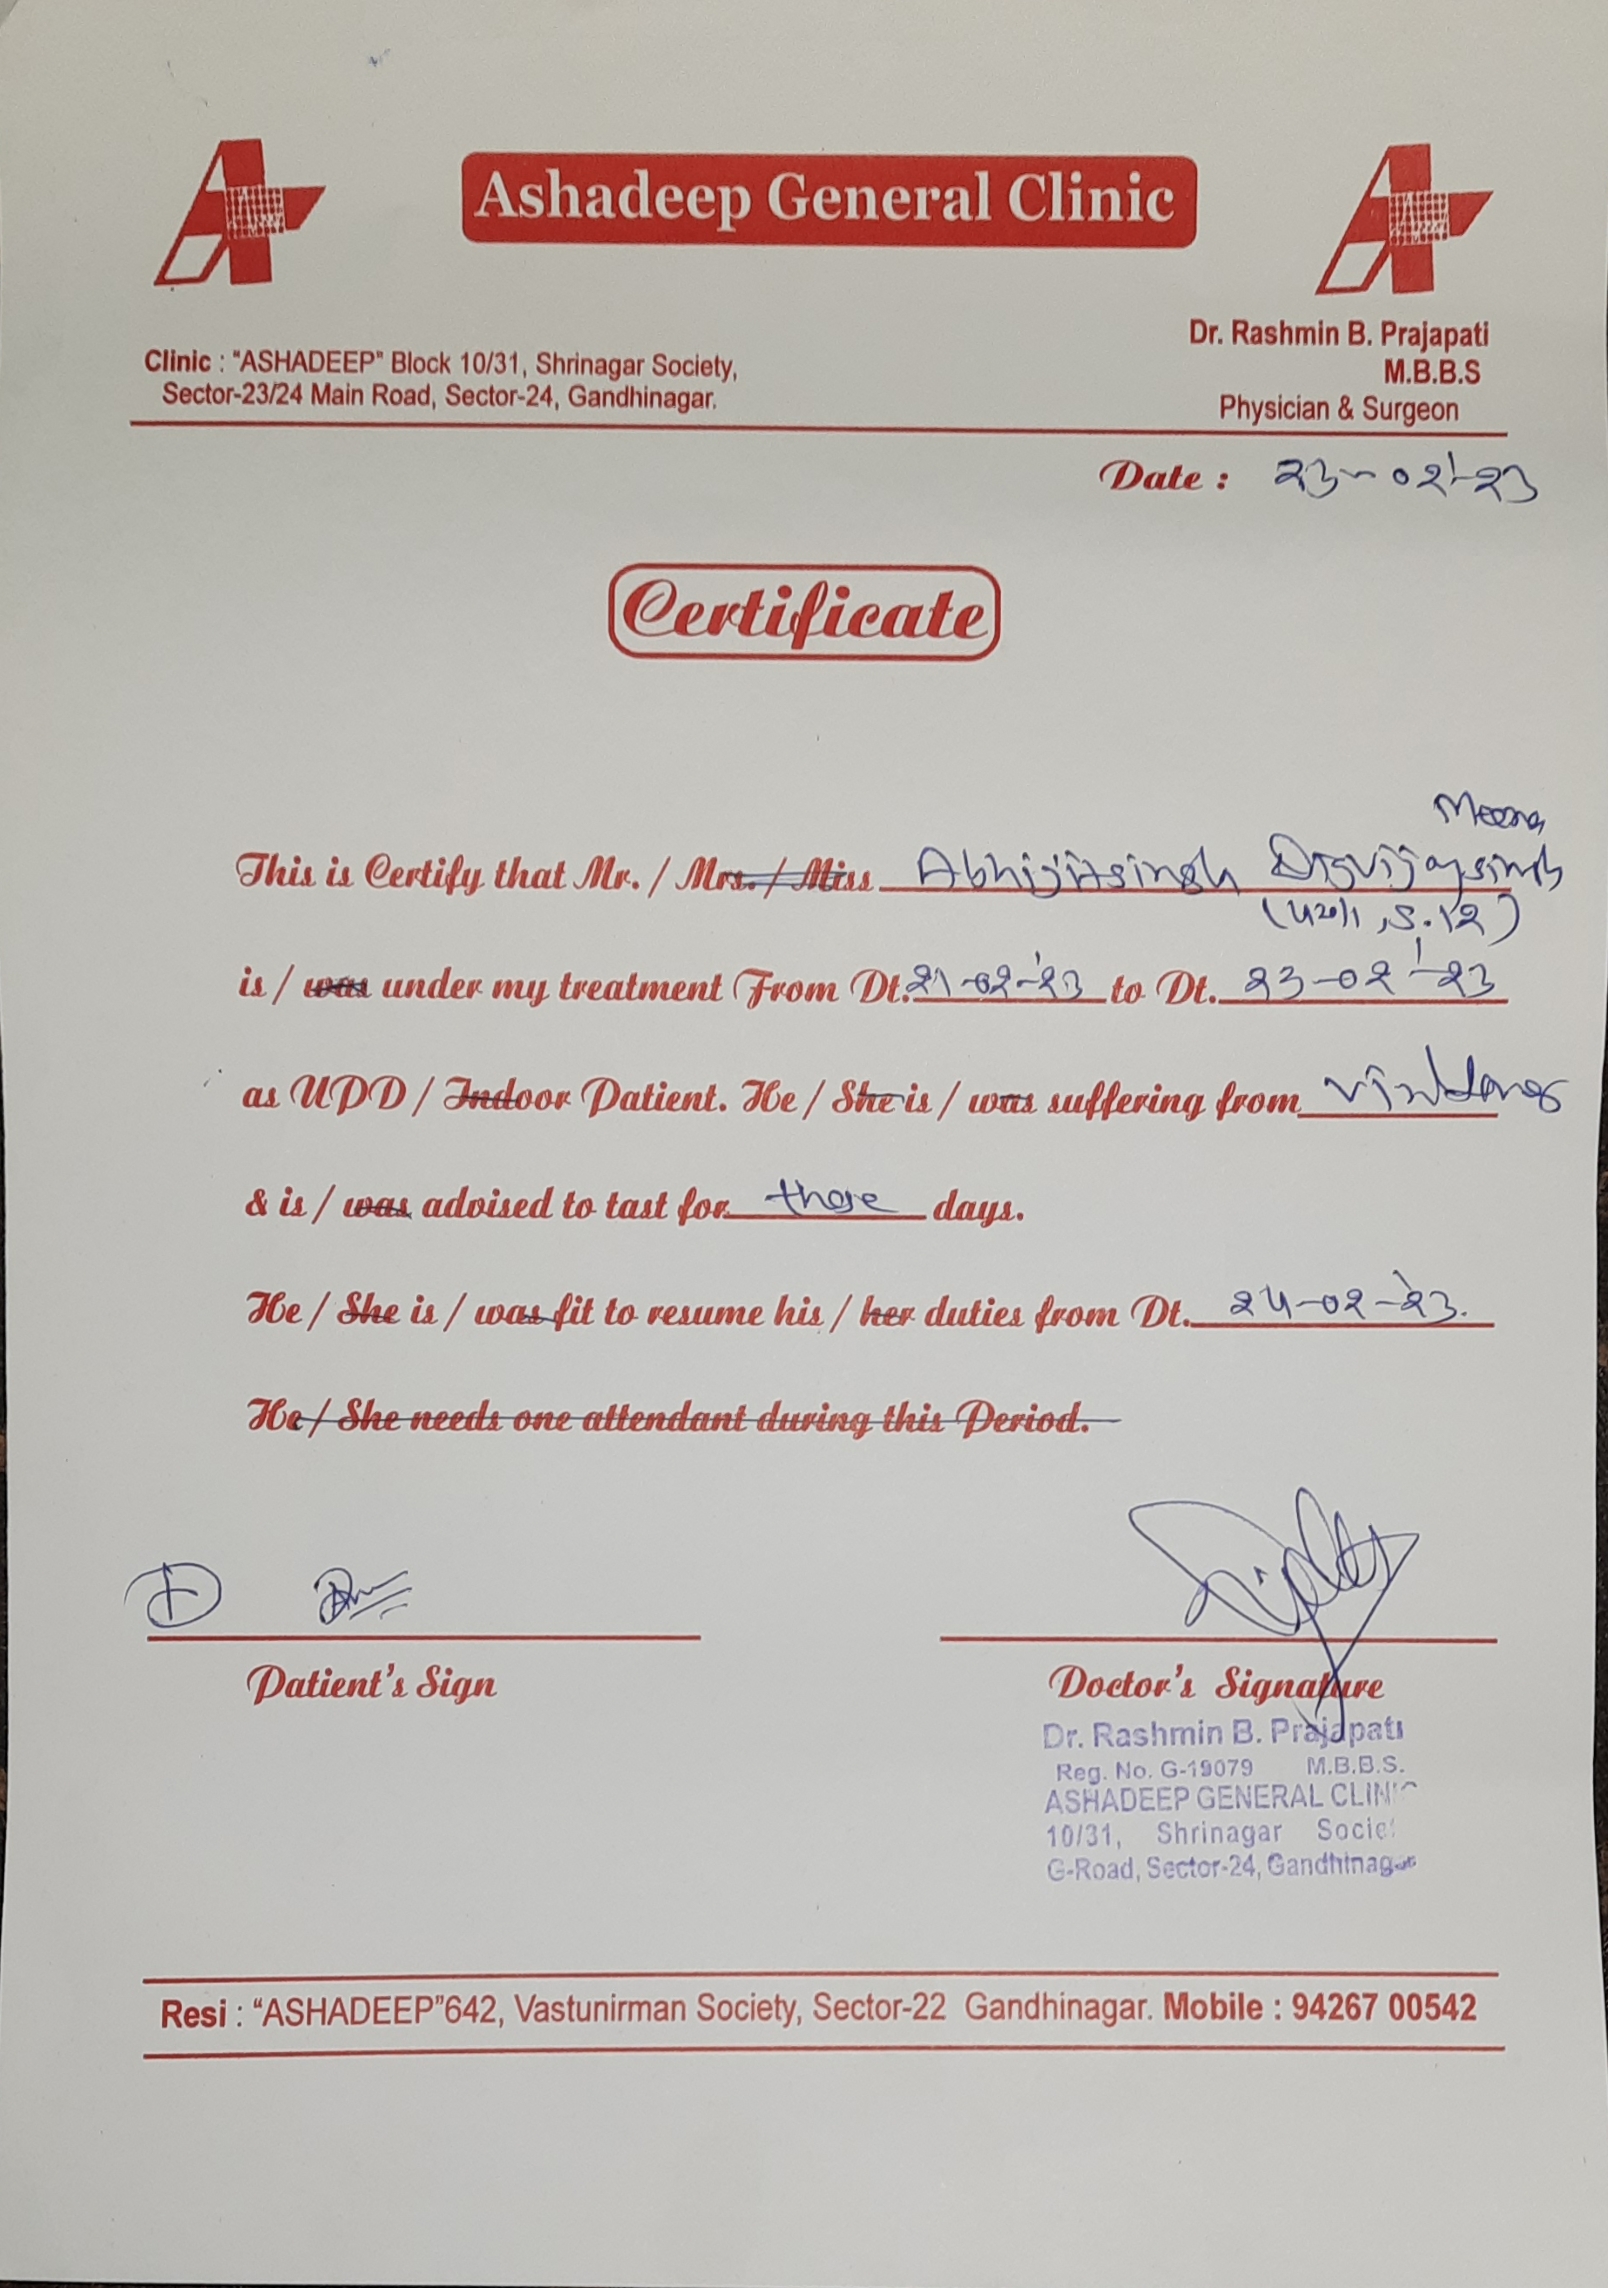 Ashadeep General Clinic
Clinic : "ASHADEEP" Block 10/31, Shrinagar Society,
Sector-23/24 Main Road, Sector-24, Gandhinagar.
Dr. Rashmin B. Prajapati
M.B.B.S
Physician & Surgeon
Date : ૨૩-૦૨-'૨૩
Certificate
Meena
This is Certify that Mr. / Mrs. / Miss Abhijitsingh Digvijaysingh
is / was under my treatment From Dt. ૨૧-૦૨-'૨૩ to Dt. ૨૩-૦૨-'૨૩
as UPD / Indoor Patient. He / She is / was suffering from
& is / was advised to tast for these days.
He / She is / was fit to resume his / her duties from Dt. ૨૪-૦૨-'૨૩.
He / She needs one attendant during this Period.
Patient's Sign
Doctor's Signature
Dr. Rashmin B. Prajapati
Reg. No. G-19079 M.B.B.S.
ASHADEEP GENERAL CLINIC
10/31, Shrinagar
G-Road, Sector-24, Gandhinagar
Resi : “ASHADEEP”642, Vastunirman Society, Sector-22 Gandhinagar. Mobile : 94267 00542